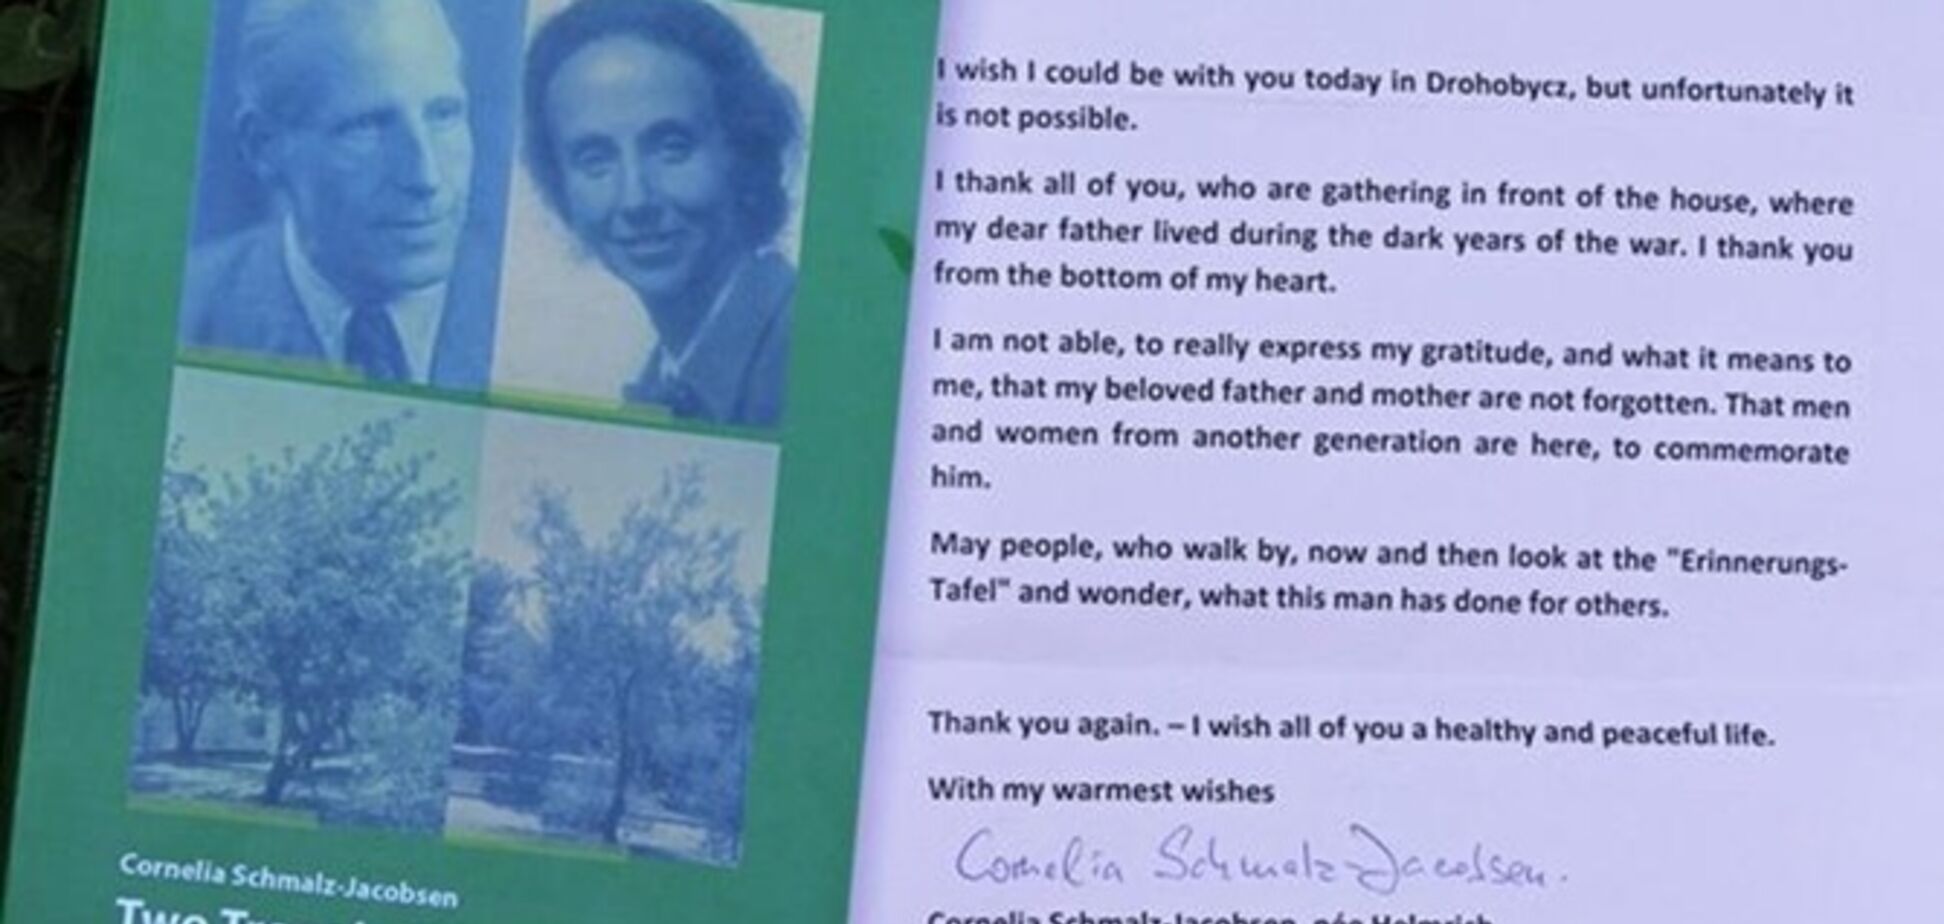 I wish I could be with you today in Drohobycz, but unfortunately it
is not possible.
I thank all of you, who are gathering in front of the house, where
my dear father lived during the dark years of the war. I thank you
from the bottom of my heart.
I am not able, to really express my gratitude, and what it means to
me, that my beloved father and mother are not forgotten. That men
and women from another generation are here, to commemorate
him.
May people, who walk by, now and then look at the "Erinnerungs-
Tafel" and wonder, what this man has done for others.
Thank you again. – I wish all of you a healthy and peaceful life.
With my warmest wishes
Cornelia Schmalz-Jacobsen.
Cornelia Schmalz-Jacobsen, née Helmrich
Cornelia Schmalz-Jacobsen
Two